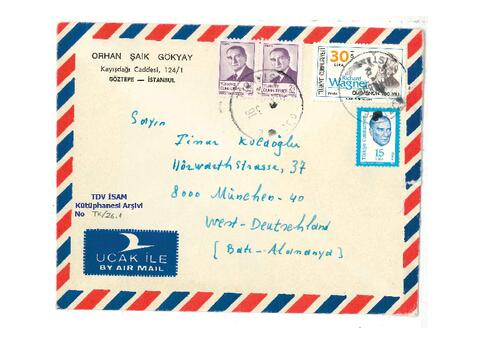 ORHAN ŞAİK GÖKYAY
Kayışdağı Caddesi, 124/1
GÖZTEPE — İSTANBUL
TÜRKİYE CUMHURİYETİ
30
LİRA
Richard
Wagner
15
Sayın
Timar Kuloğlu
Hörwarthstrasse, 37
8000 München - 40
West-Deutschland
[Batı-Almanya]
TDV İSAM
Kütüphanesi Arşivi
No TK/26.1
UÇAK İLE
BY AIR MAIL